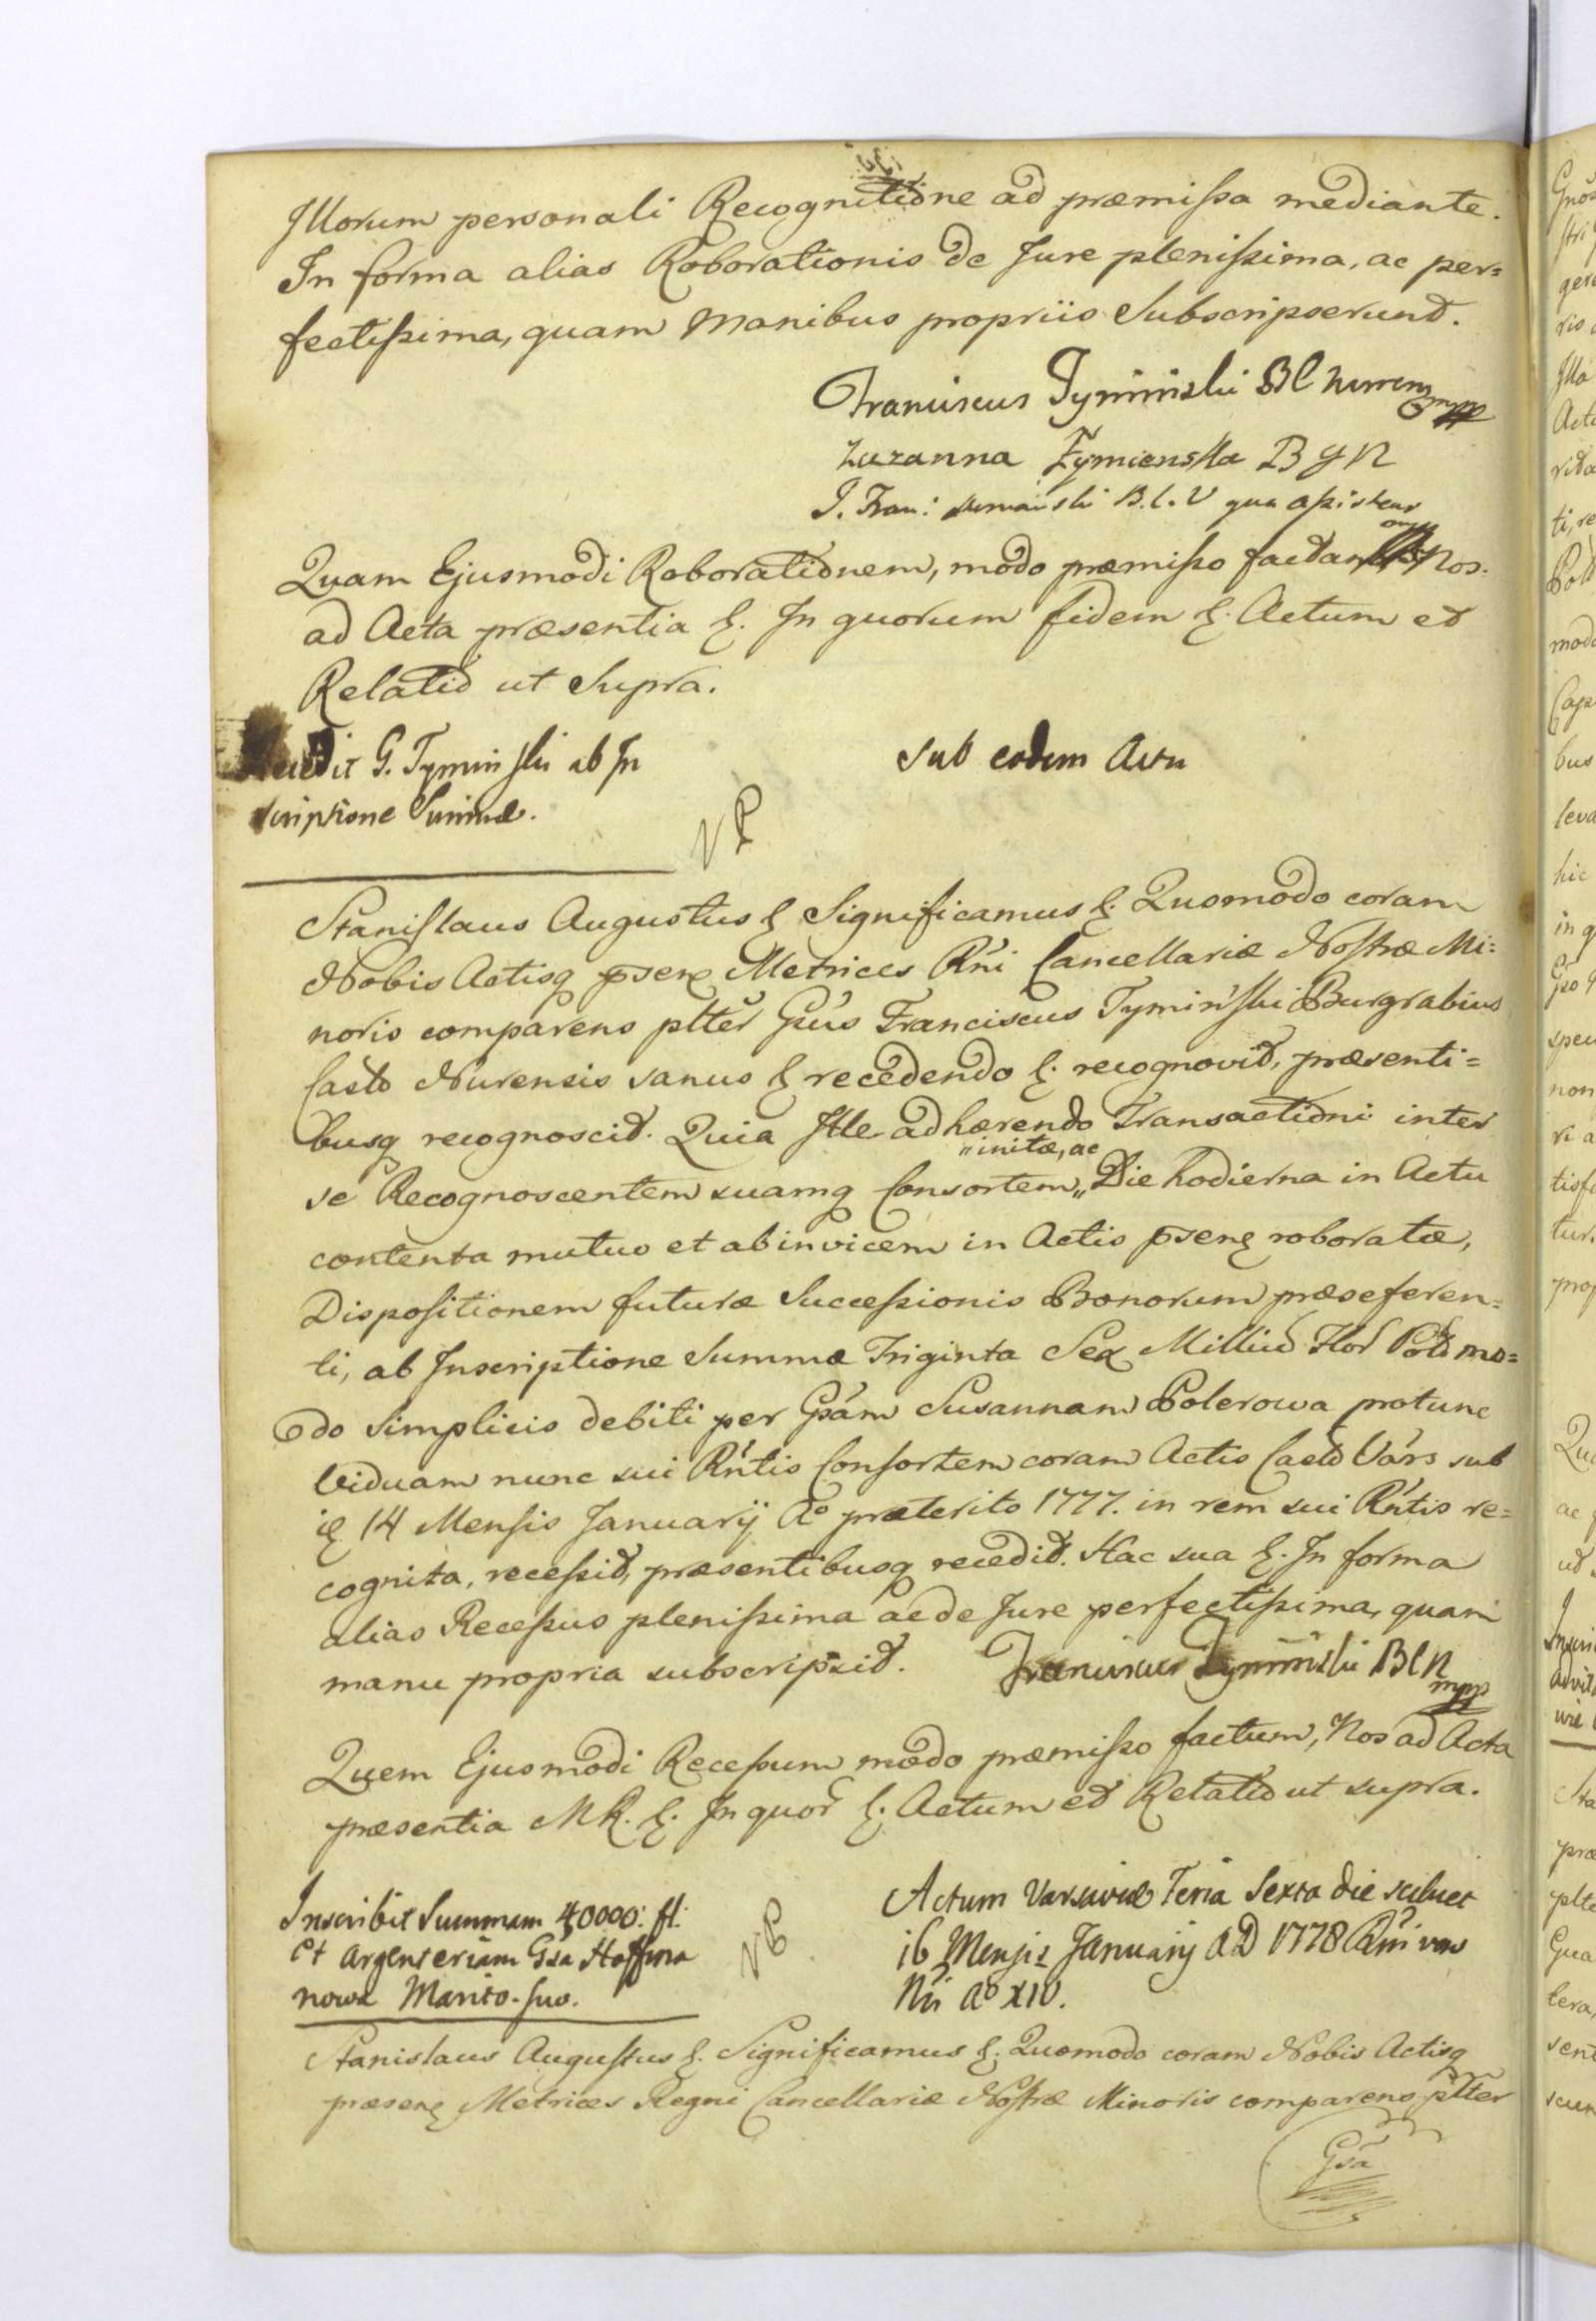 Illorum personali Recognitione ad præmissa mediante.
In forma alias Roborationis de Jure plenissima, ac per=
fectissima, quam Manibus propriis Subscripserunt.
Franciscus Tyminski BC Nurren mpp
Zuzanna Tymienska B G N
J. Fran: B. C. V qua assistens
mpp
Quam Ejusmodi Roborationem, modo præmisso factam Nos.
ad Acta præsentia &. In quorum fidem &. Actum et
Relatio ut Supra.
Recedit G. Tyminski ab In
scriptione Summæ.
Sub eodem Actu
VP
Stanislaus Augustus & Significamus &. Quomodo coram
Nobis Actisq psenť Metrices Rńi Cancellariæ Nostræ Mi=
noris comparens plter Gsús Franciscus Tymiński Burgrabius
Castr Nurensis sanus & recedendo &. recognovit, præsenti=
busq recognoscit. Quia Ille adhærendo Transactioni inter
"initæ, ac
se Recognoscentem suamq Consortem,, Die hodierna in Actu
contenta mutuo et abinvicem in Actis psenť roboratæ,
Dispositionem futuræ Successionis Bonorum præseferen=
ti, ab Inscriptione Summæ Triginta Sex Milliu Flor Pold mo=
do Simplicis debiti per Gsám Susannam Polerowa protunc
Viduam nunc sui Rńtis Consortem coram Actis Castr Várs sub
iť 14 Mensis Januarij Ao præterito 1777. in rem sui Rńtis re=
cognita, recessit, præsentibusq recedit. Hac sua &. In forma
alias Recessus plenissima ac de Jure perfectissima, quam
manu propria subscripsit. Franciscus Tyminski BCN
mpp
Quem Ejusmodi Recessum modo præmisso factum, Nos ad Acta
præsentia MR. &. In quor &. Actum et Relatio ut supra.
Inscribit Summam 40000: fl:
et Argenteriam Gsa Hoffma
nowa Marito suo.
VP
Actum Varsaviæ Feria Sexta die scilicet
16 Mensis Januarij AD 1778 Rńi vero
Nri Ao XIV.
Stanislaus Augustus &. Significamus &. Quomodo coram Nobis Actisq
præsenť Metrices Regni Cancellariæ Nostræ Minoris comparens plter
Gsa